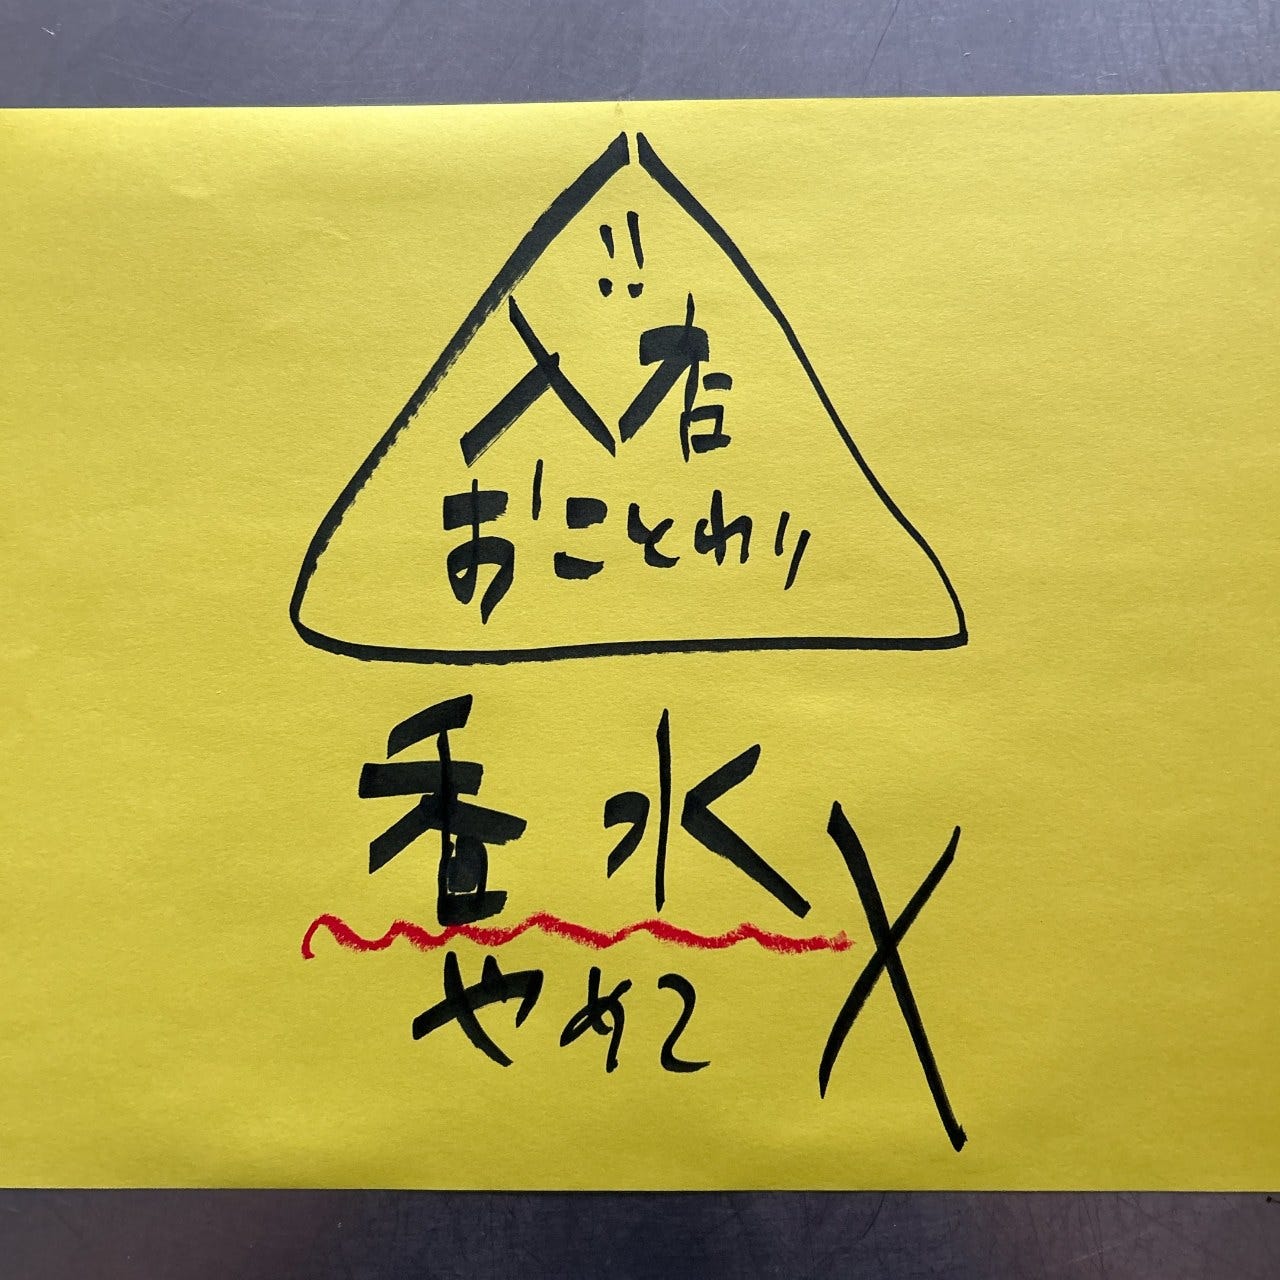 !!
入店
おことわり
香水
やめて
X